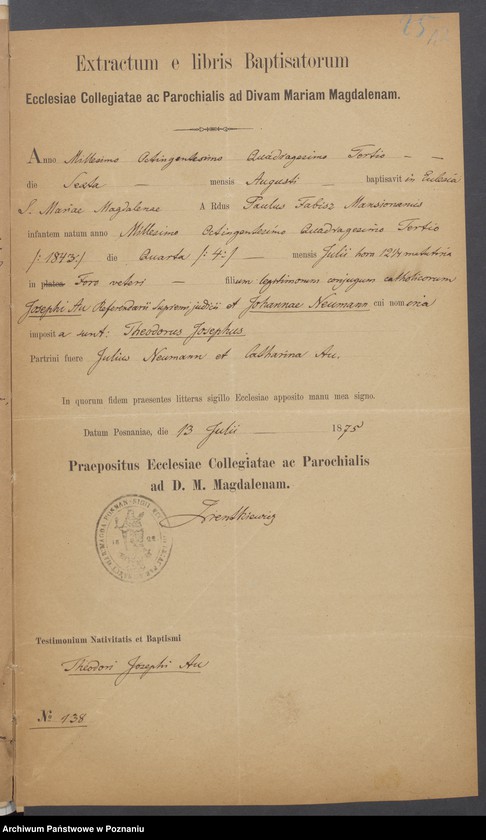 Extractum e libris Baptisatorum
Ecclesiae Collegiatae ac Parochialis ad Divam Mariam Magdalenam.
Anno Millesimo Octingentesimo Quadragesimo Tertio
die Sexta mensis Augusti baptisavit in Ecclesia
S. Mariae Magdalenae A Rdus Paulus Fabisz Mansionarius
infantem natum anno Millesimo Octingentesimo Quadragesimo Tertio
/:1843:/ die Quarta /:4:/ mensis Julii hora 12¼ matutina
in platea Foro veteri filium legitimorum conjugum catholicorum
Josephi Au Referendarii Supremi judicii et Johannae Neumann cui nomina
imposita sunt: Theodorus Josephus.
Patrini fuere Julius Neumann et Catharina Au.
In quorum fidem praesentes litteras sigillo Ecclesiae apposito manu mea signo.
Datum Posnaniae, die 13 Julii 1875
Praepositus Ecclesiae Collegiatae ac Parochialis
ad D. M. Magdalenam.
Testimonium Nativitatis et Baptismi
Theodori Josephi Au
№ 138
Archiwum Państwowe w Poznaniu